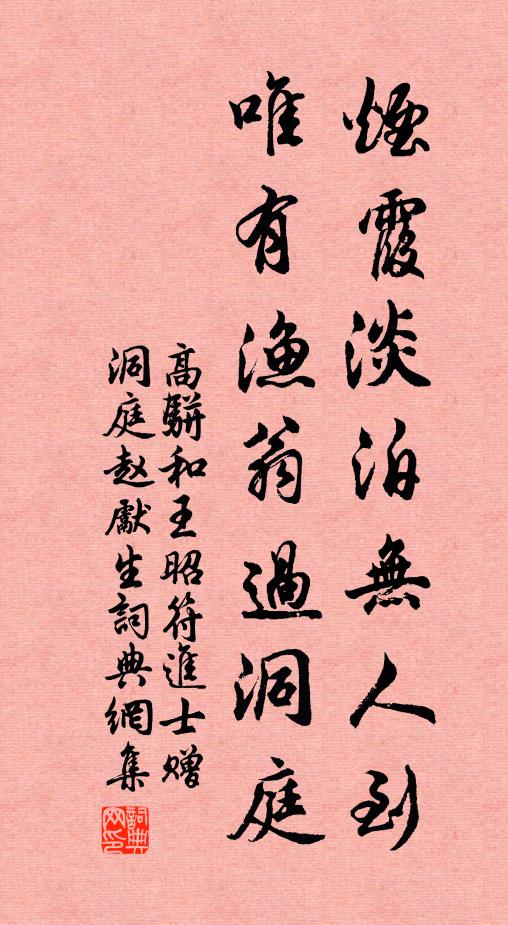 煙霞淡泊無人到
唯有漁翁過洞庭
高駢和王昭符進士贈
洞庭赵獻生詞典網集
詞典网印